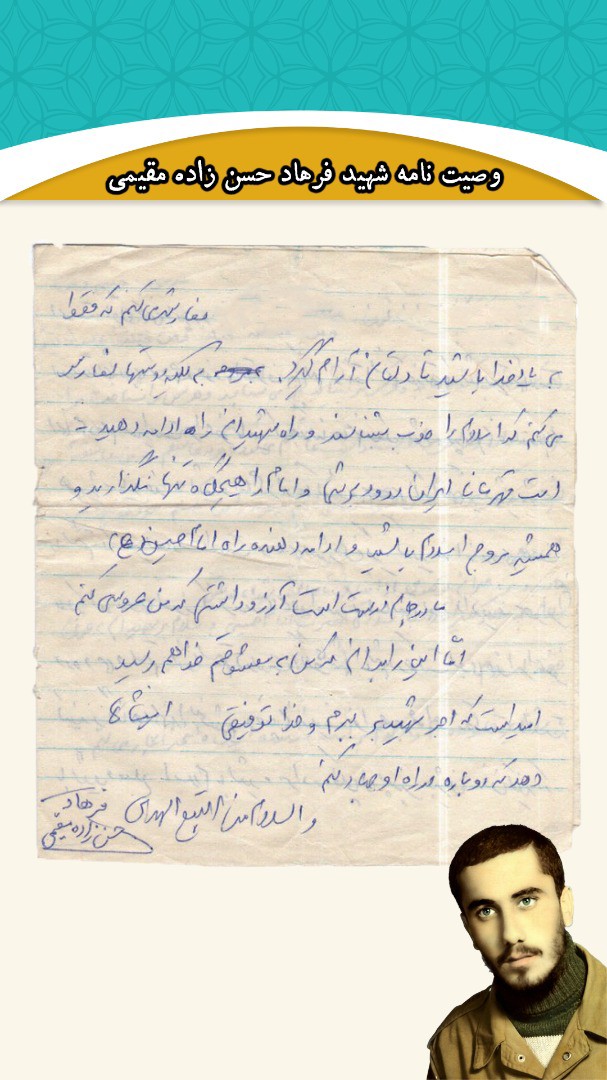 وصیت نامه شهید فرهاد حسن زاده مقیمی
سفارش می کنم که فقط
به یاد خدا باشید تا دلتان آرام گیرد. به ملک دوستها سفارش
می کنم که اسلام را خوب بشناسند و راه شهیدان را ادامه دهید -
امت قهرمان ایران درود بر شما و امام را هیچگاه تنها نگذارید و
همیشه مروج اسلام باشید و ادامه دهنده راه امام حسین (ع)
مادرجان درست است آرزو داشتی که من عروسی کنم
اما این را بدان که من به معشوقم خواهم رسید
امید است که اجر شهید ببرم و خدا توفیقی
دهد که دوباره در راه او جهاد کنم
والسلام من التبع الهدی
فرهاد
حسن زاده مقیمی